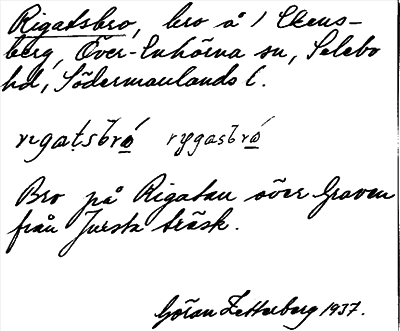 Rigatsbro, bro å / Ekens-
berg, Över-Enhörna sn, Selebo
hd, Södermanlands l.
rigatsbró rygasbró
Bro på Rigatan över Graven
från Jursta träsk.
Göran Zetterberg 1937.